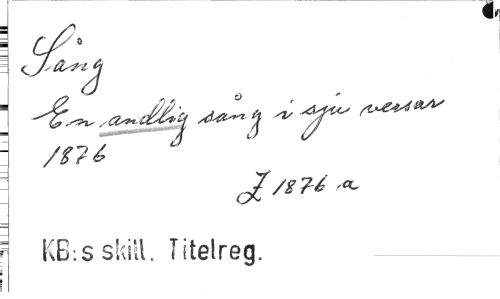 Sång
En andlig sång i sju versar
1876
Z 1876 a
KB:s skill. Titelreg.